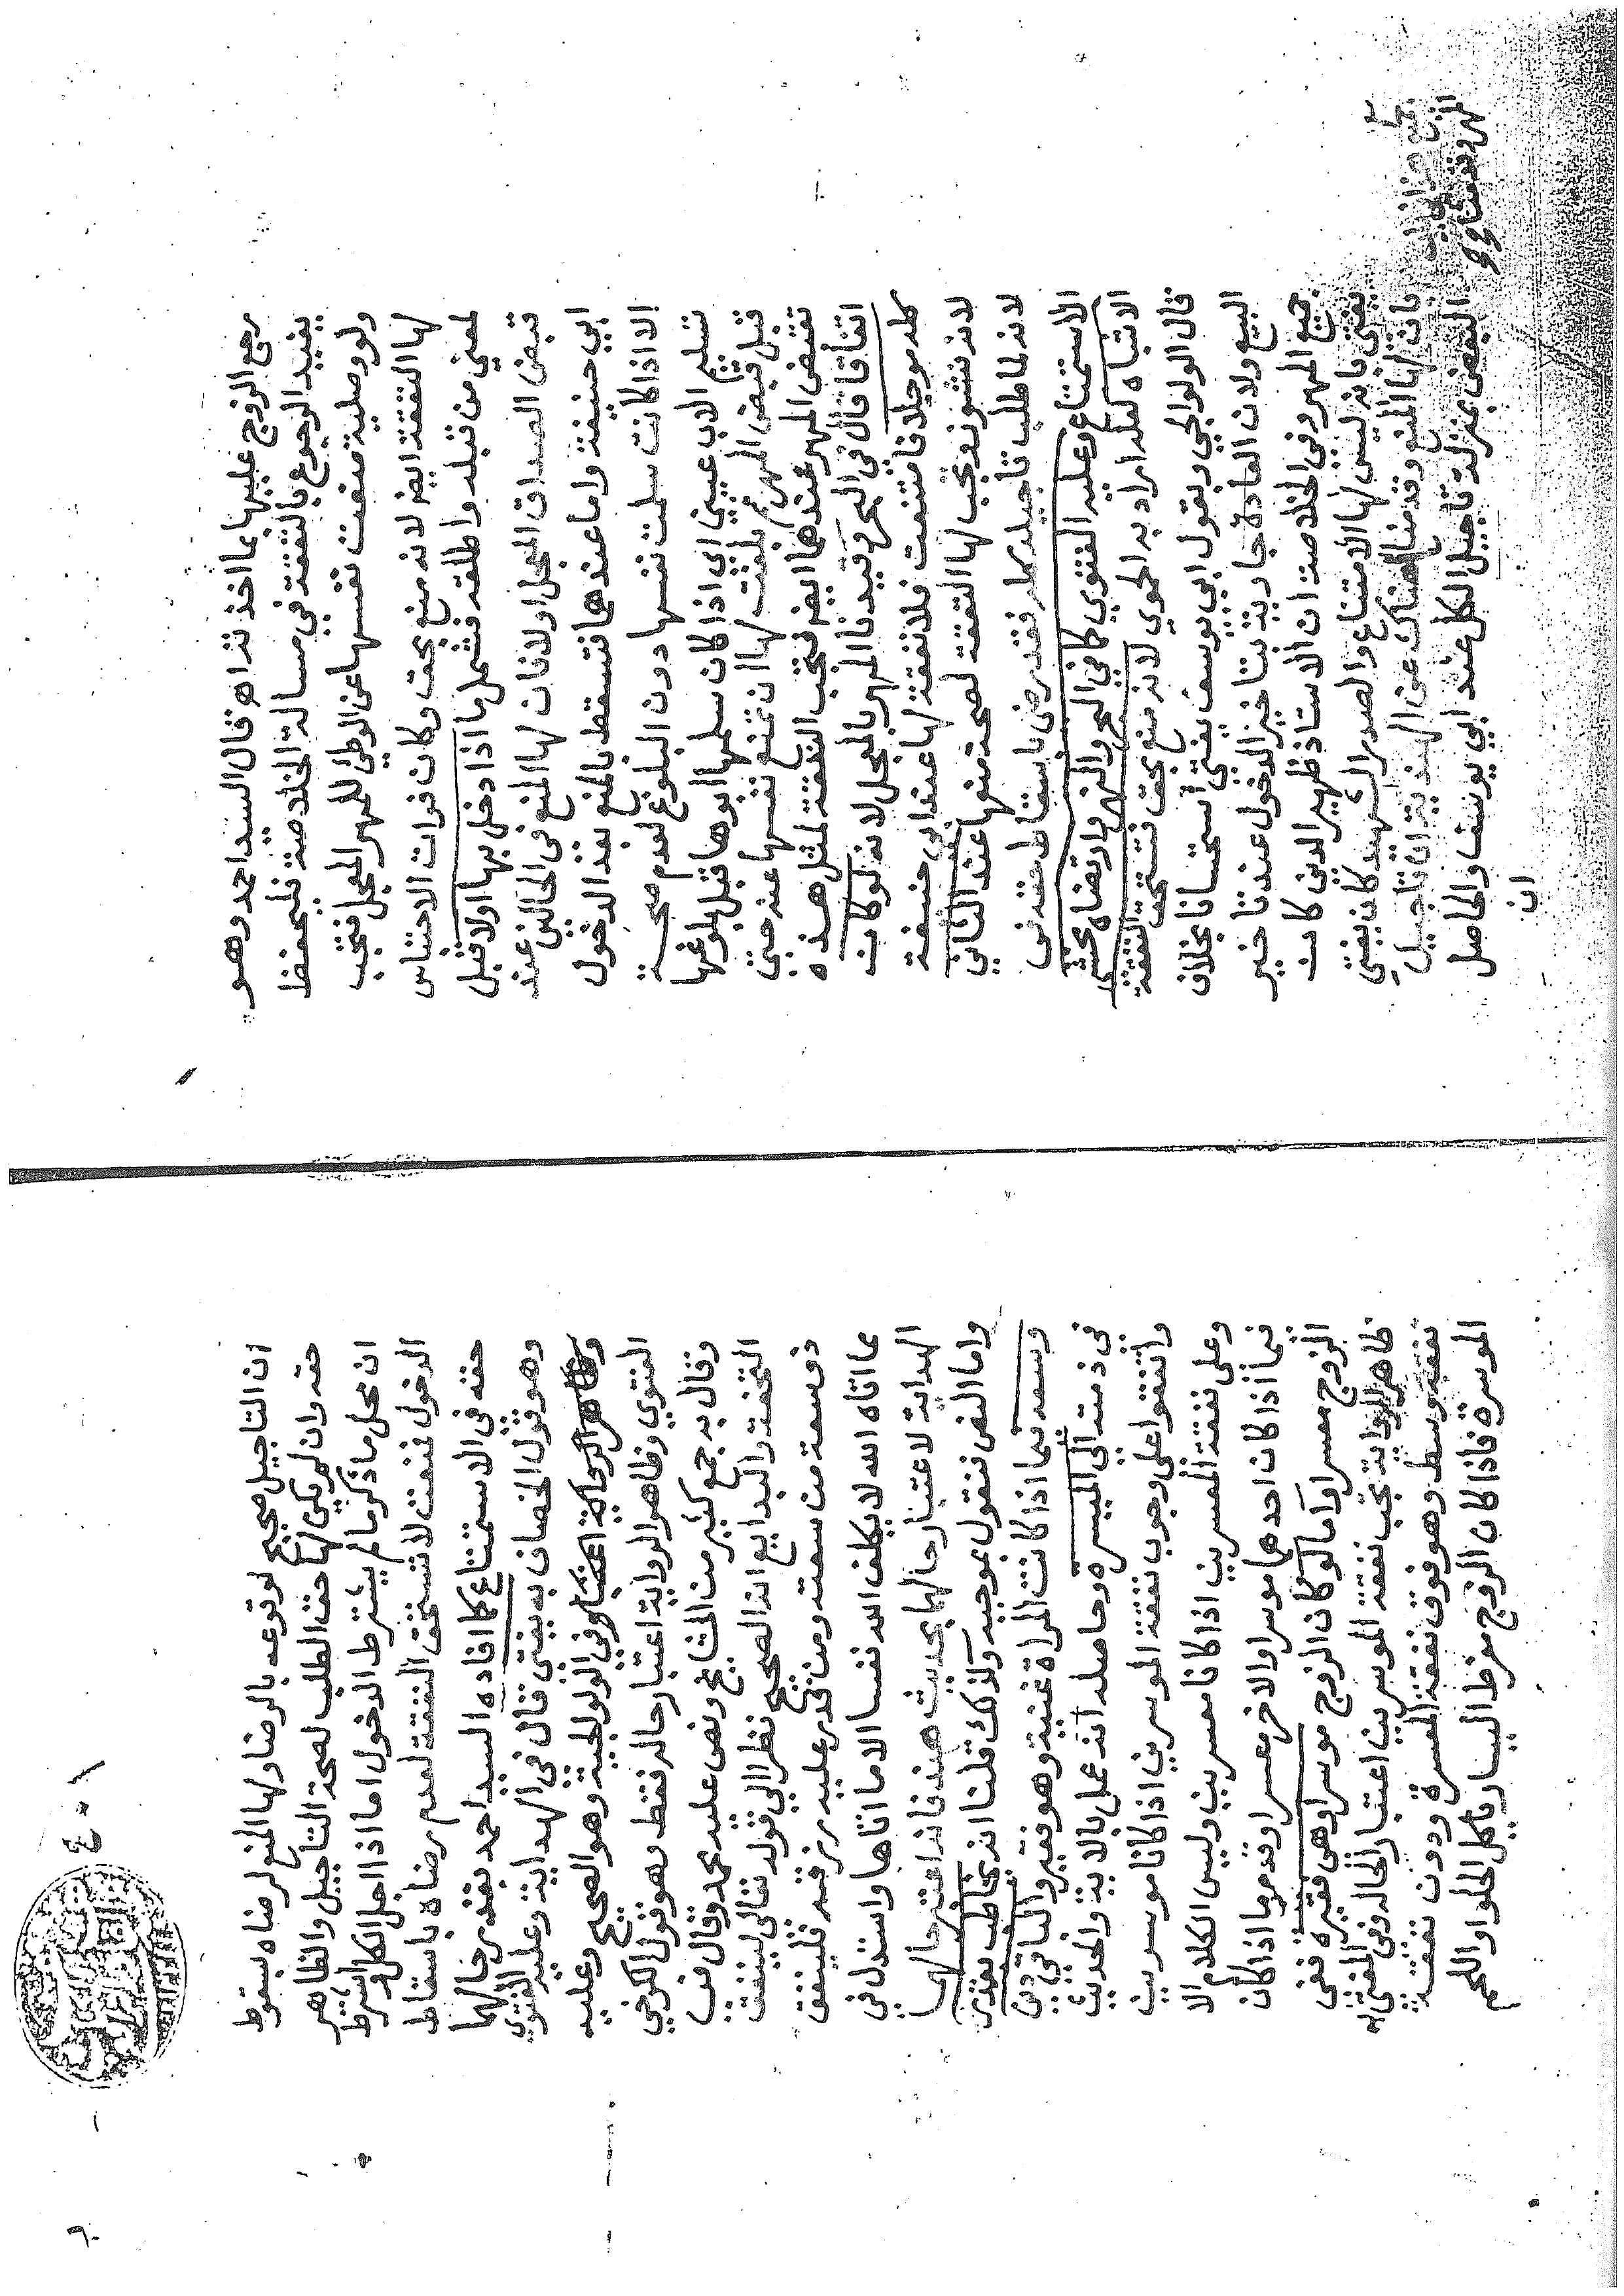 رجع الزوج عليها بما اخذته اهر قال السيد احمد وهو
يفيد الرجوع بالنفقة في مسالة الخلاصة فليحفظ
ولو وصلية منعت نفسها عن الوطئ للمهر المعجل فتجب
لها النفقة ايضا لانه منع بحق وكان فوات الاحتباس
لمعني من قبله واطلقه فشمل ما اذا دخل بها اولا قبل
قبض الصداق المعجل اولا فان لها المنع في الحالين عند
ابي حنيفة واما عندهما فتسقط بالمنع بعد الدخول
الا اذا كانت سلمت نفسها دون البلوغ لعدم صحة
تسليم الاب عيني اي اذا كان سلمها ابوها قبل بلوغها
قبل قبض المهر ثم بلغت لها ان تمنع نفسها عنه حتي
تقتضي المهر عندهما ايضا فتجب النفقة لمثل هذه
اتفاقا قال في البحر قيدنا المهر بالمعجل لانه لو كان
كله موجلا فامتنعت فلا نفقة لها عند ابي حنيفة
لانه نشوز وتجب لها النفقة لصحة منعها عند الثاني
لانه لما طلب تاجيله كله فقد رضي باسقاط حقه في
الاستمتاع وعليه الفتوي كما في البحر والنهر وارتضاه محشي
الاشباه اراد به الحموي لانه منع بحق فتستحق النفقة
قال الولوالجي وبقول ابي يوسف يفتي استحسانا بخلاف
البيع ولان العادة جارية بتاخير الدخول عند تاخير
جميع المهر وفي الخلاصة ان الاستاذ ظهير الدين كان
يفتي بانه ليس لها الامتناع والصدر الشهيد كان يفتي
بان لها المنع وقدمنا هناك عن الهندية ان تاجيل
البعض بمنزلة تاجيل الكل عند ابي يوسف والحاصل
ان
ان التاجيل صحيح لوقوعه بالرضا ولها المنع لرضاه بسقوط
حقه وان لم يكن لها حق الطلب لصحة التاجيل والظاهر
ان محل ما ذكر ما لم يشترط الدخول اما اذا اجل الكل وشرط
الدخول فمنعت لا تستحق النفقة لعدم رضاه باسقاط
حقه في الاستمتاع كما افاده السيد احمد بقدر حالهما
وهو قول الخصاف به يفتي قال في الهداية وعليه الفتوي
وفي الولوالجية وهو الصحيح وعليه
الفتوي وظاهر الرواية اعتبار حاله فقط وهو قول الكرخي
وقال به جمع كثير من المشايخ ونص عليه محمد وقال في
التحفة والبدايع انه الصحيح نظرا الي قوله تعالي لينفق
ذو سعة من سعته ومن قدر عليه رزقه فلينفق
مما اتاه الله لا يكلف الله نفسا الا ما اتاها واستدل في
الهداية لاعتبار حالهما بحديث هند فانه اعتبر حالهما
واما النص فنقول بموجبه ولذلك قلنا انه يخاطب بقدر
وسعه فيما اذا كانت المراة غنية وهو فقير والباقي دين
في ذمته الي الميسرة وحاصله انه عمل بالاية والحديث
واتفقوا علي وجوب نفقة الموسرين اذا كانا موسرين
وعلي نفقة المعسرين اذا كانا معسرين وليس الكلام الا
فيما اذا كان احدهما موسرا والاخر معسرا وقدم ما اذا كان
الزوج معسرا واما لو كان الزوج موسرا وهي فقيرة فعلي
ظاهر الرواية تجب نفقة الموسرين اعتبارا لحاله وفي المفتي به
نفقة وسط وهو فوق نفقة المعسرة ودون نفقة
الموسرة فاذا كان الزوج مفرط اليسار ياكل الحلوا واللحم
٦٠